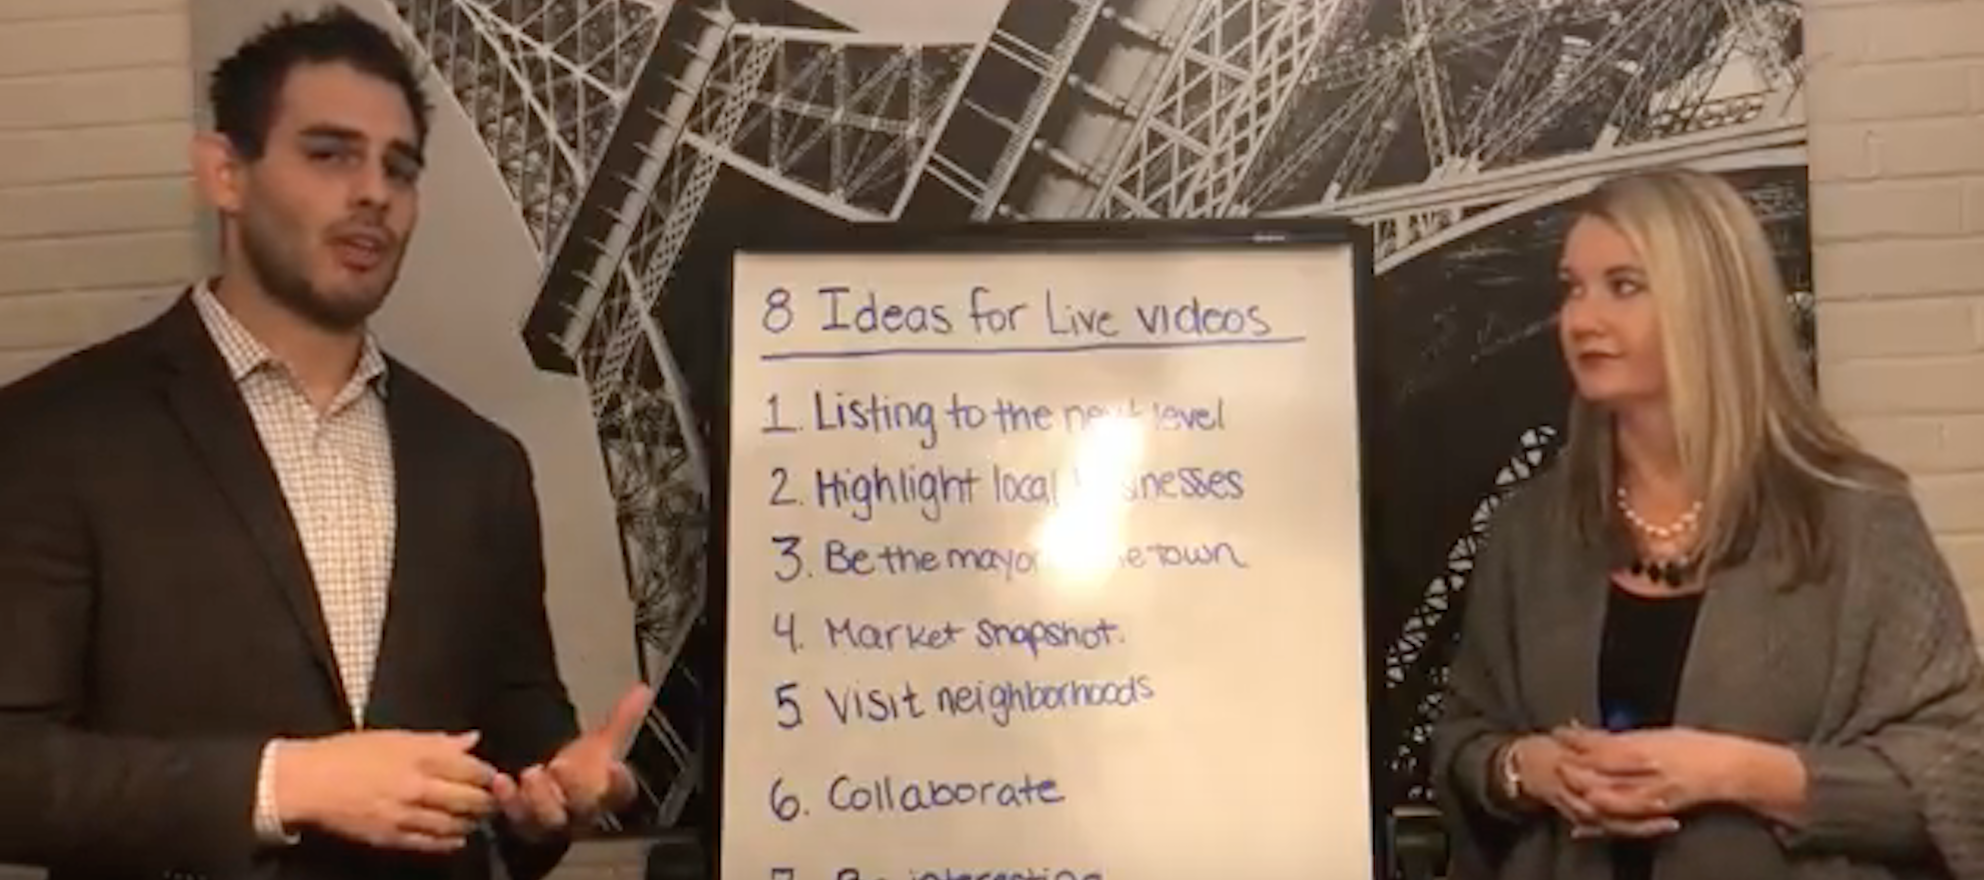 8 Ideas for Live videos
1. Listing to the next level
2. Highlight local businesses
3. Be the mayor town
4. Market Snapshot.
5 Visit neighborhoods
6. Collaborate
7. Be interesting